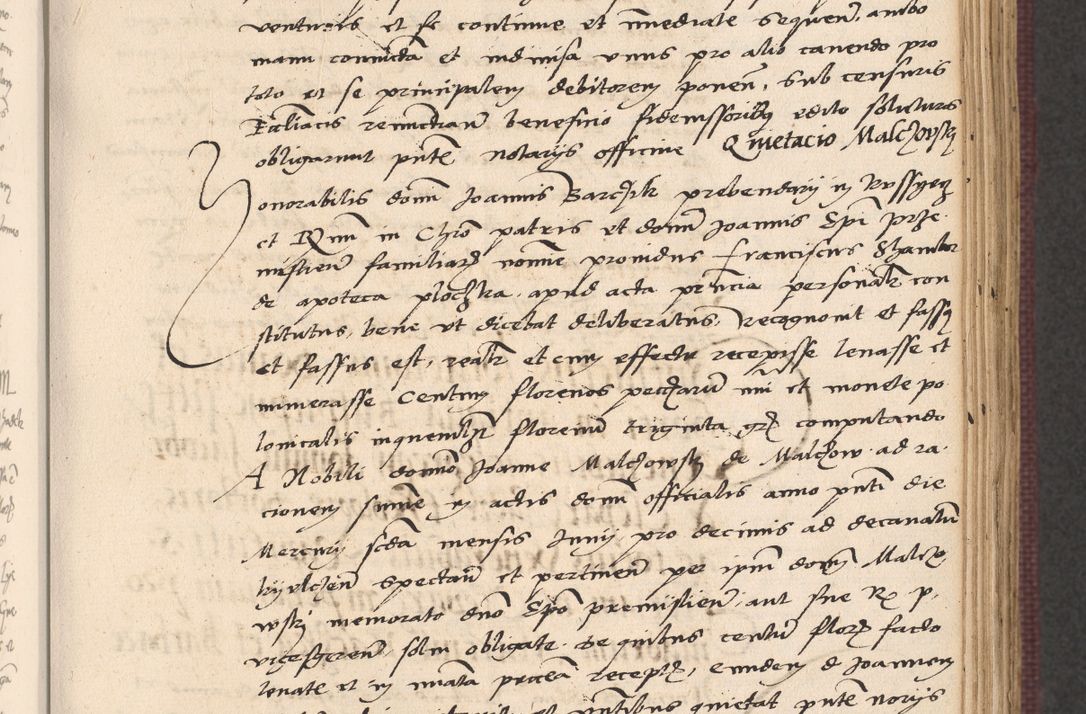 venturis et sic continue et immediate sequen̄. ambo
manu coniuncta et indivisa unus pro alio cavendo pro
toto et se principalem debitorem ponen̄, sub censuris
Ecc̄liacis renunctian̄ beneficio fideiussoribus edito soluturos
obligarunt pn̄te notarijs officine Quietacio Malchowsky
Honorabilis domini Joannis Barchik prebendarij in
et R̄mi in Chr̄o patris et domini Joannis Epī Prze
misliēn familiaris nomine providus Franciscus
de apoteca plochka. apud acta pn̄cia personaliter con
stitutus, bene ut dicebat deliberatus, Recognovit et fassus
et fassus est, realiter et cum effectu recepisse levasse et
numerasse Centum florenos pecuniarum et monete po
lonicalis inquemlibet florenum triginta grs computando
A Nobili domino Joanne Malchowsky de Malchow. ad ra
cionem summe in actis domini officialis anno pn̄ti die
Mercurij scd̄a mensis Junij pro decimis ad decanatum
spectan̄ et pertinen̄ per ipm̄ domin̄ Malcho
wsky memorato dn̄o Epō premislien̄. aut sue R. p.
vicesgeren̄ solvi obligate. de quibus centum flor̄ facto
levate et in receptis, eundem d Joannem
et pn̄tibus quietat pn̄te norijs